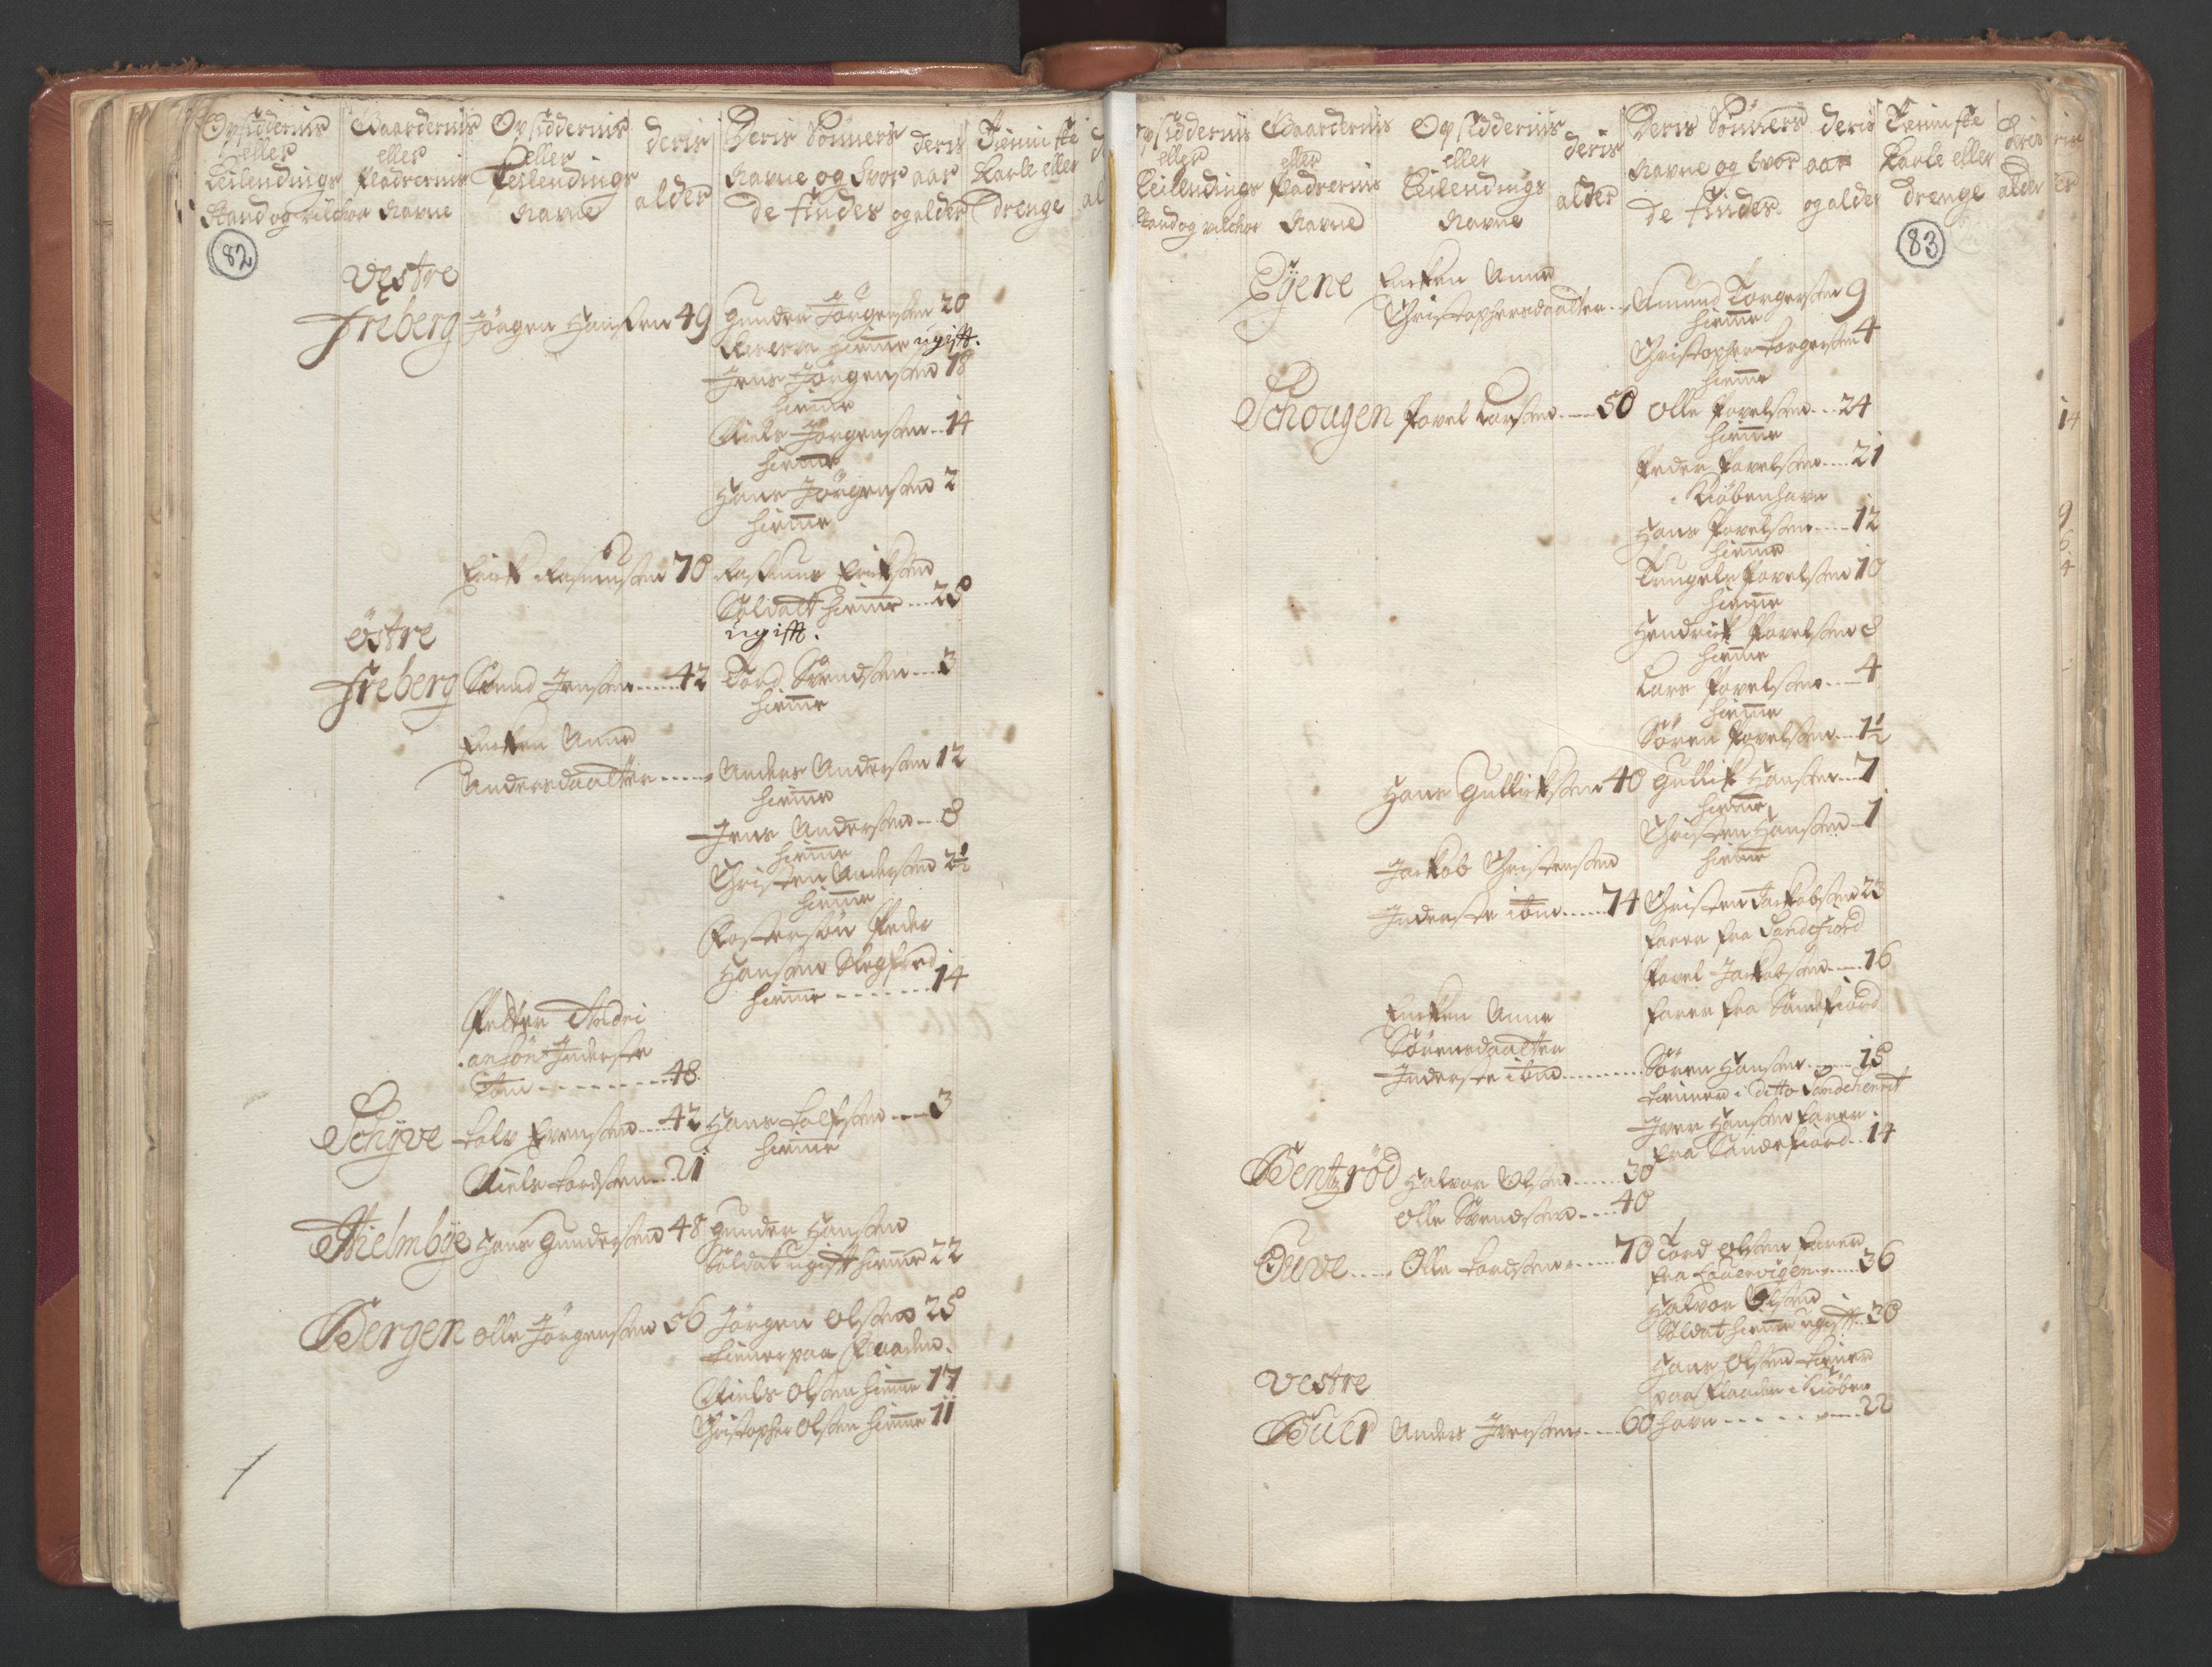 Opsiddernis eller Leilendings Stand og vilchor
Gaardernis eller Pladzernis Navne
Opsiddernis eller Leilendings Navne
deris alder
Deris Sönners Navne og hvor de findes
deris aar og alder
Tienniste Karle eller drenge
82
vestre
Freberg Jörgen Hansen 49 Gunder Jörgensen 20
Reserve hieme ugifft.
Jens Jörgensen 18
hieme
Niels Jörgensen 14
hieme
Hans Jörgensen 2
hieme
Erick Rasmusen 70 Rasmus Ericksen
Soldatt hieme 28
ugifft.
östre
Freberg Svend Jensen 42 Tord Svendsen 3
hieme
Encken Anne
Andersdaatter Anders Andersen 12
hieme
Jens Andersen 8
hieme
Christen Andersen 2½
hieme
Fostersön Peder
Hansen
hieme 14
Petter Andri
ansön Inderste
ibm 48
Schÿve Lolv Evensen 42 Hans Lolfsen 3
hieme
Niels Tordsen 21
Hielmbÿe Hans Gundersen 48 Gunder Hansen
Soldat ugifft hieme 22
Bergen Olle Jörgensen 56 Jörgen Olsen 25
tiener paa Flaaden.
Niels Olsen hieme 17
Christopher Olsen hieme 11
Opsiddernis eller Leilendings Stand og vilchor
Gaardernis eller Pladzernis Navne
Opsiddernis eller Leilendings Navne
deris alder
Deris Sönners Navne og hvor de findes
deris aar og alder
Tienniste Karle eller drenge
deris alder
83
Eÿene Encken Anne
Christophersdaatter Amund Torgersen 9
hieme
Christopher Torgersen 4
hieme
Schougen Povel Larsen 50 Olle Povelsen 24
hieme
Peder Povelsen 21
i Kiöbenhavn
Hans Povelsen 12
hieme
Povelsen 10
hieme
Hendrick Povelsen 8
hieme
Lars Povelsen 4
hieme
Sören Povelsen 1½
Hans Gullicksen 40 Gullik Hansen 7
hieme
Christen Hansen 1
hieme
Jackob Christensen
Inderste ibm 74 Christen Jackobsen 23
farer fra Sandefiord
Povel Jackobsen 16
farer fra Sandefiord
Encken Anne
Sörensdaatter
Inderste ibm Sören Hansen 18
tiener i ditto Sandeherrit
Iver Hansen farer
fra Sandefiord 14
Bentzröd Halvor Olsen 30
Olle Svendsen 40
Tuve Olle Tordsen 70 Tord Olsen farer
fra Lauervigen 36
Halvor Olsen
Soldat hieme ugifft 30
Hans Olsen tiener
paa Flaaden i Kiöben
havn 22
vestre
Buer Anders Iversen 60
14
9
6
4